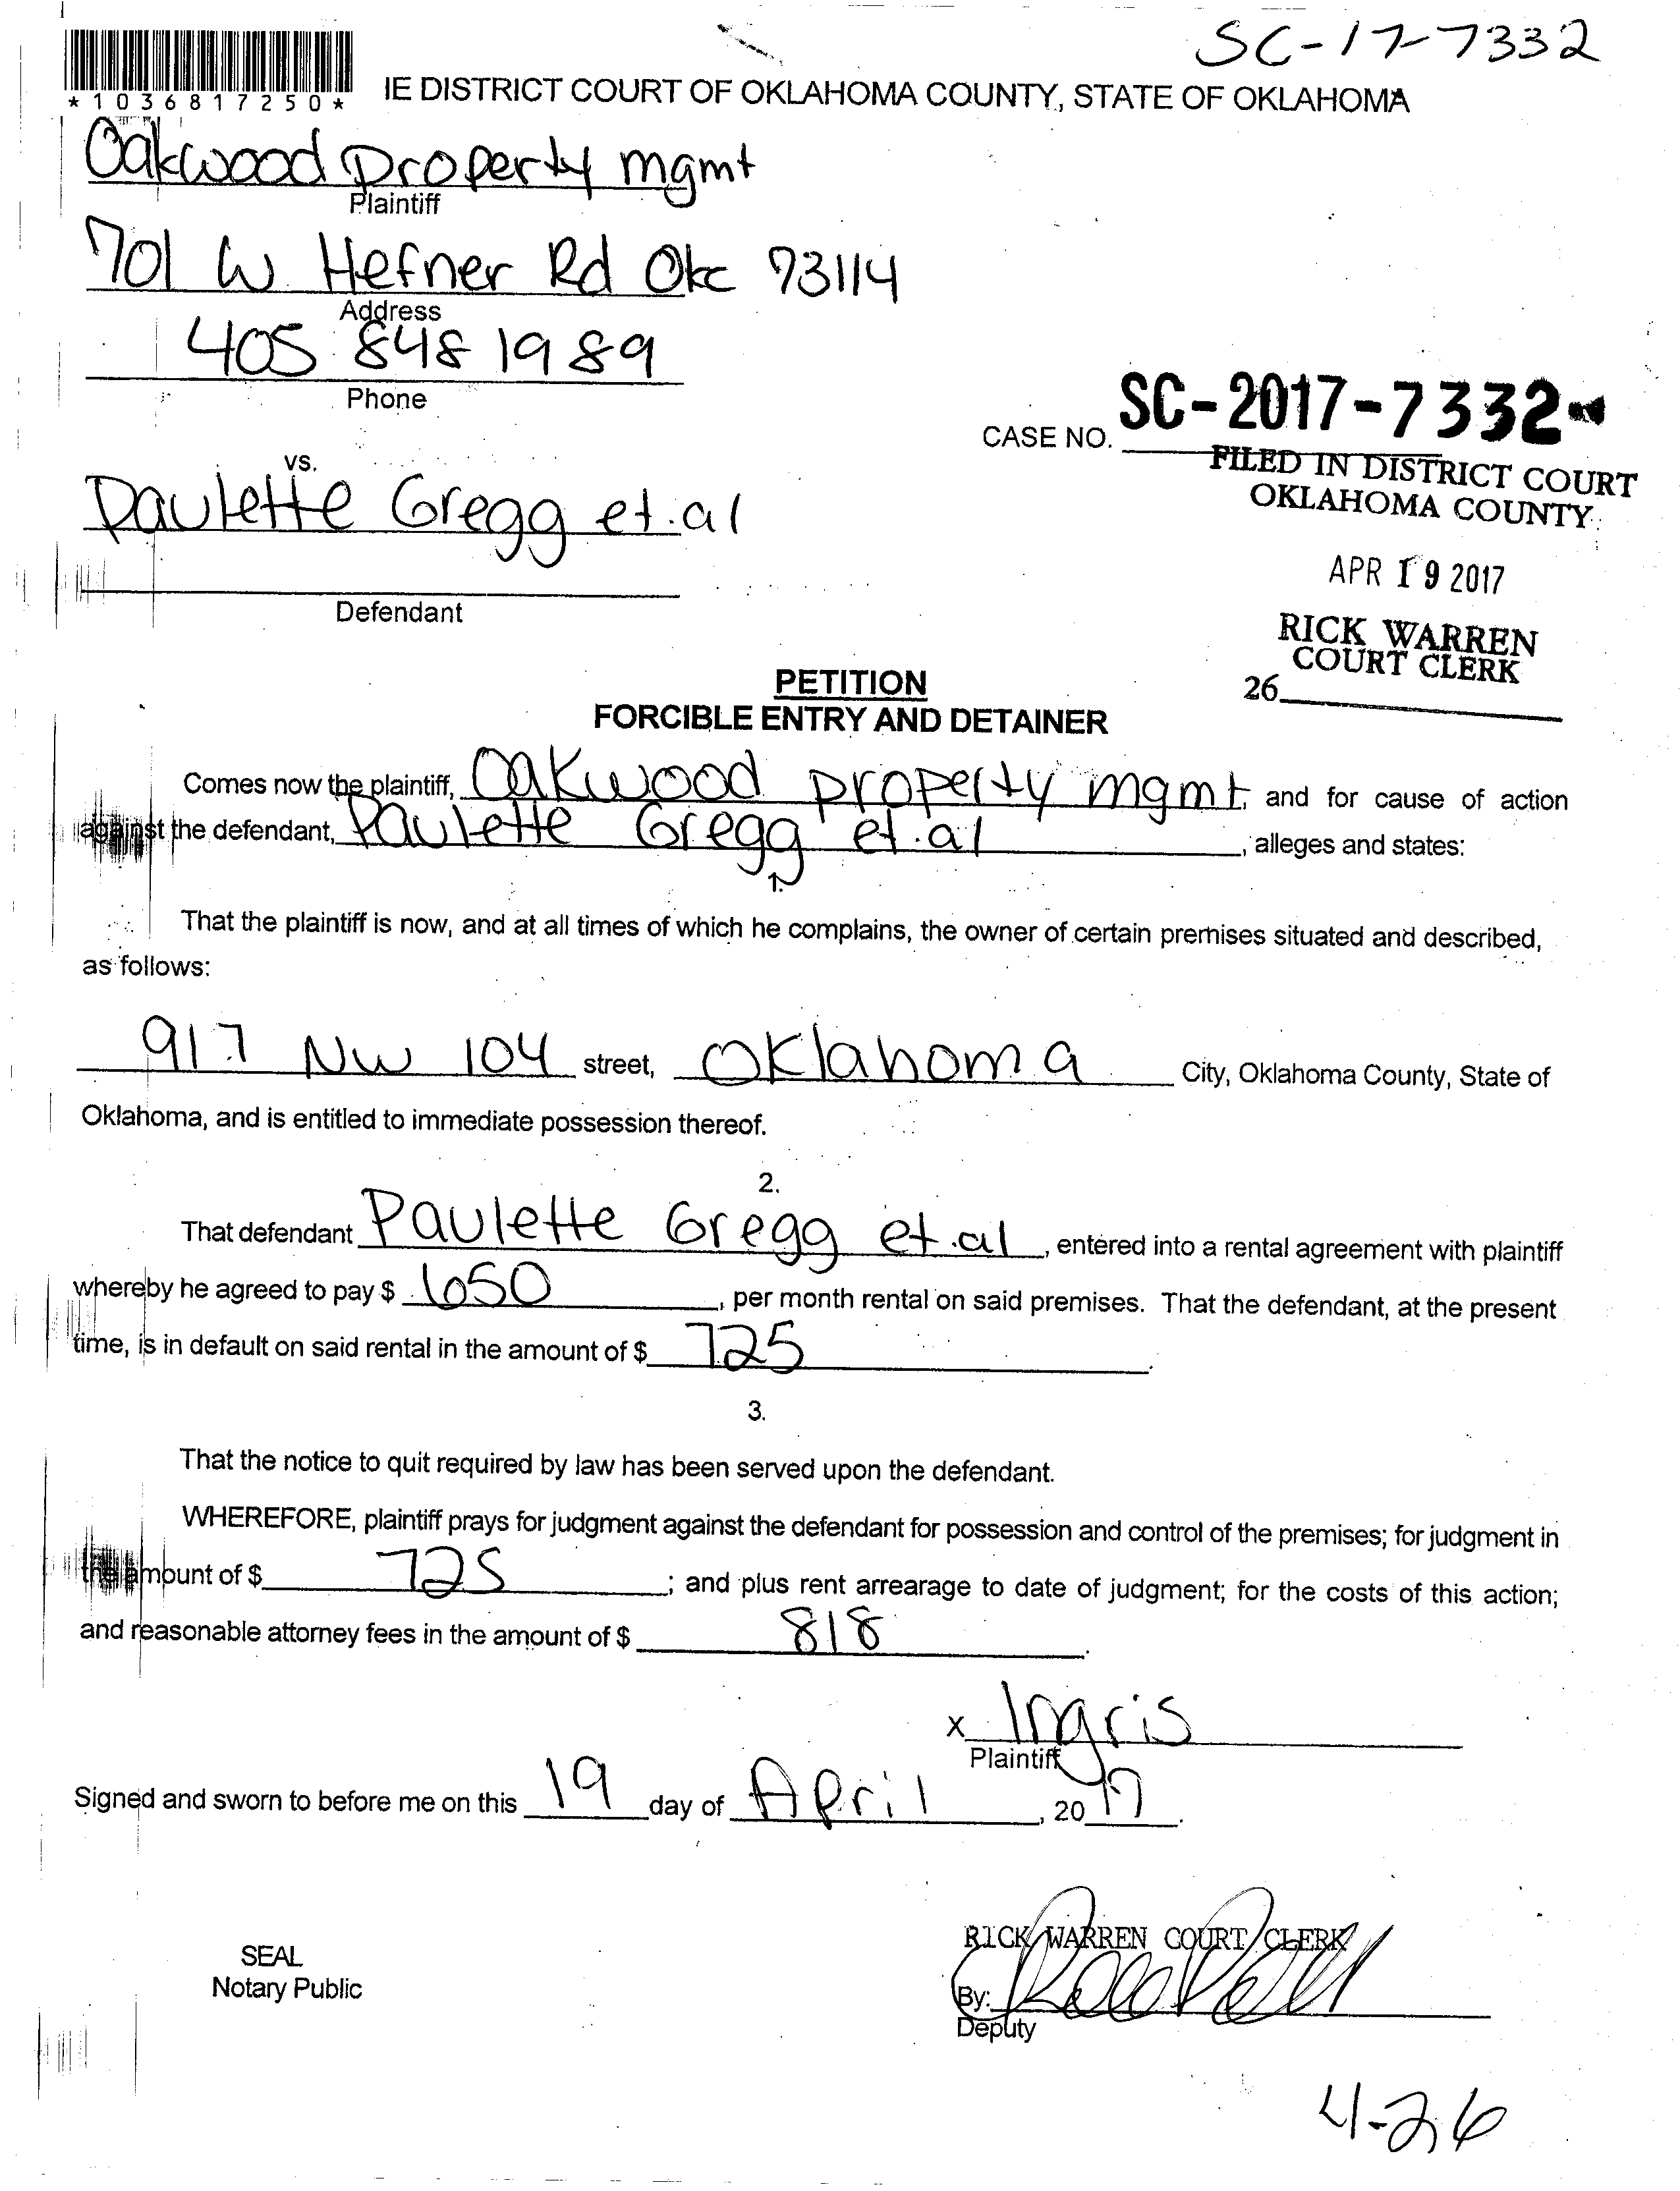 SC-17-7332
*1036817250*
IE DISTRICT COURT OF OKLAHOMA COUNTY, STATE OF OKLAHOMA
Oakwood Property mgmt
Plaintiff
701 W Hefner Rd Okc 73114
Address
405 848 1989
Phone
CASE NO. SC-2017-7332
FILED IN DISTRICT COURT
OKLAHOMA COUNTY
vs.
Paulette Gregg et.al
APR 19 2017
Defendant
RICK WARREN
COURT CLERK
26
PETITION
FORCIBLE ENTRY AND DETAINER
Comes now the plaintiff, Oakwood property mgmt, and for cause of action
against the defendant, Paulette Gregg et.al, alleges and states:
1.
That the plaintiff is now, and at all times of which he complains, the owner of certain premises situated and described,
as follows:
917 NW 104 street, Oklahoma City, Oklahoma County, State of
Oklahoma, and is entitled to immediate possession thereof.
2.
That defendant Paulette Gregg et.al, entered into a rental agreement with plaintiff
whereby he agreed to pay $ 650, per month rental on said premises. That the defendant, at the present
time, is in default on said rental in the amount of $ 725.
3.
That the notice to quit required by law has been served upon the defendant.
WHEREFORE, plaintiff prays for judgment against the defendant for possession and control of the premises; for judgment in
the amount of $ 725; and plus rent arrearage to date of judgment; for the costs of this action;
and reasonable attorney fees in the amount of $ 818.
x Ingris
Plaintiff
Signed and sworn to before me on this 19 day of April, 20 17.
RICK WARREN COURT CLERK
SEAL
Notary Public
By:
Deputy
4-26